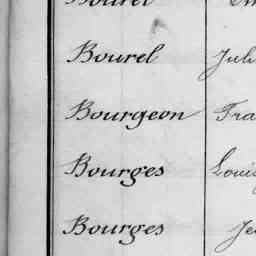 Bourel
Bourel Juli
Bourgeon Fra
Bourges Louis
Bourges Je